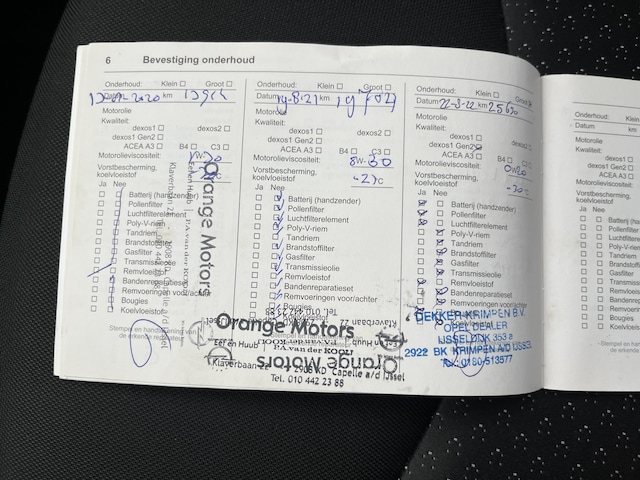 6 Bevestiging onderhoud
Onderhoud: Klein Groot
Datum 2020 km
Motorolie
Kwaliteit:
dexos1 dexos2
dexos1 Gen2
ACEA A3 B4 C3
Motorolieviscositeit: W-30
Vorstbescherming, koelvloeistof
Ja Nee
Batterij (handzender)
Pollenfilter
Luchtfilterelement
Poly-V-riem
Tandriem
Brandstoffilter
Gasfilter
Transmissieolie
Remvloeistof
Bandenreparatieset
Remvoeringen voor/achter
Bougies
Koelvloeistof
Stempel en handtekening van de erkende reparateur
Orange Motors
Eef en Huub
P.A. van der KOOIJ
Klaverbaan 22
2908 KD Capelle a/d IJssel
Tel. 010 442 23 88
Onderhoud: Klein Groot
Datum 19-8-21 km
Motorolie
Kwaliteit:
dexos1 dexos2
dexos1 Gen2
ACEA A3 B4 C3
Motorolieviscositeit: W-30
Vorstbescherming, koelvloeistof °C
Ja Nee
Batterij (handzender)
Pollenfilter
Luchtfilterelement
Poly-V-riem
Tandriem
Brandstoffilter
Gasfilter
Transmissieolie
Remvloeistof
Bandenreparatieset
Remvoeringen voor/achter
Bougies
Orange Motors
Eef en Huub
P.A. van der KOOIJ
Klaverbaan 22 2908 KD Capelle a/d IJssel
Tel. 010 442 23 88
Orange Motors
Onderhoud: Klein Groot
Datum 22-3-22 km 25630
Motorolie
Kwaliteit:
dexos1 dexos2
dexos1 Gen2
ACEA A3 B4 C3
Motorolieviscositeit: 0W20
Vorstbescherming, koelvloeistof -30 °C
Ja Nee
Batterij (handzender)
Pollenfilter
Luchtfilterelement
Poly-V-riem
Tandriem
Brandstoffilter
Gasfilter
Transmissieolie
Remvloeistof
Bandenreparatieset
Remvoeringen voor/achter
DEKKER KRIMPEN B.V.
OPEL DEALER
IJSSELDIJK 353 a
2922 BK KRIMPEN A/D IJSSEL
Tel.: 0180-513577
Onderhoud:
Datum km
Motorolie
Kwaliteit:
dexos1
dexos1 Gen2
ACEA A3
Motorolieviscositeit
Vorstbescherming, koelvloeistof
Ja Nee
Batterij (h
Pollenfilter
Luchtfilterel
Poly-V-riem
Tandriem
Brandstoffi
Gasfilter
Transmissie
Remvloeist
Bandenrep
Remvoerin
Bougies
Koelvloeis